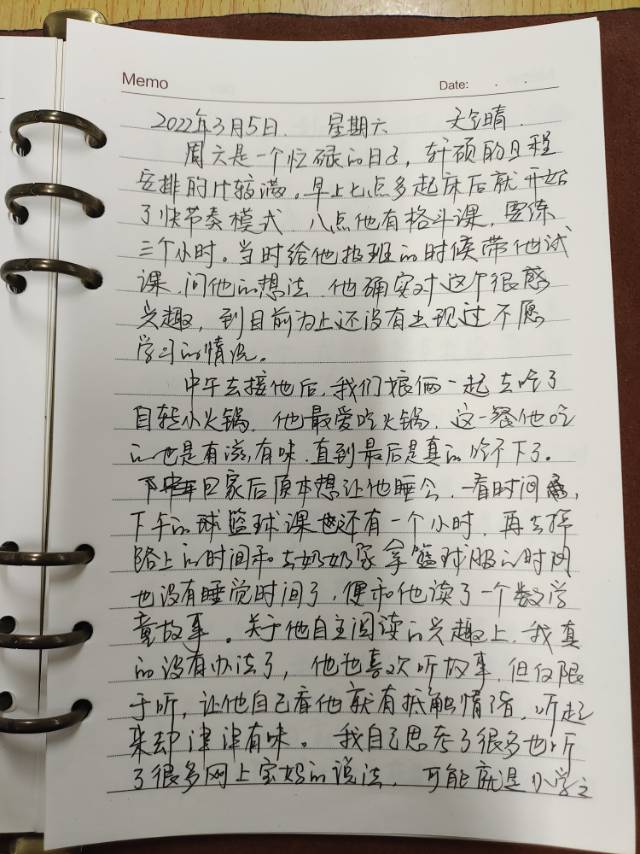 Memo Date: . .
2022年3月5日. 星期六 天气晴.
周六是一个忙碌的日子，轩硕的日程
安排的比较满。早上七点多起床后就开始
了快节奏模式 八点他有格斗课，要练
三个小时。当时给他报班的时候带他试
课.问他的想法.他确实对这个很感
兴趣，到目前为止还没有出现过不愿
学习的情况。
中午去接他后，我们娘俩一起去吃了
自转小火锅.他最爱吃火锅.这一餐他吃
的也是有滋有味.直到最后是真的吃不下了。
下午回家后原本想让他睡会.一看时间
下午的球篮球课也还有一个小时.再去掉
路上的时间和去奶奶家拿篮球服的时间
也没有睡觉时间了.便和他读了一个数学
童故事。关于他自主阅读的兴趣上.我真
的没有办法了，他也喜欢听故事.但仅限
于听，让他自己看他就有抵触情绪.听起
来却津津有味。我自己思考了很多也听
了很多网上宝妈的说法.可能就是小学之